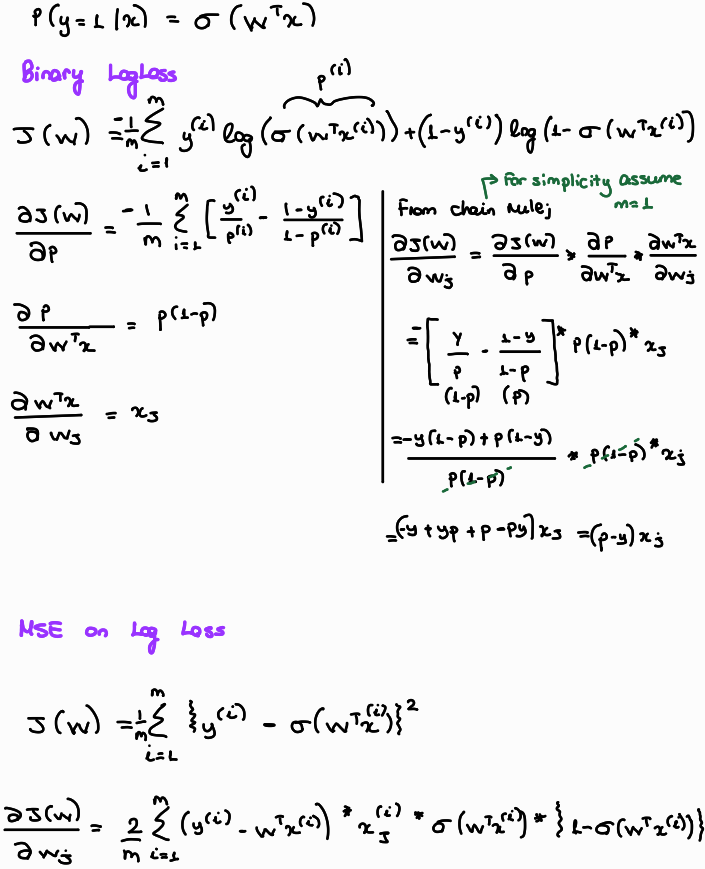 P(y=1|x) = σ(wᵀx)
Binary LogLoss
p⁽ⁱ⁾
J(w) = -1/m Σ_{i=1}^{m} y⁽ⁱ⁾ log(σ(wᵀx⁽ⁱ⁾)) + (1-y⁽ⁱ⁾) log(1- σ(wᵀx⁽ⁱ⁾)]
∂J(w)/∂p = -1/m Σ_{i=1}^{m} [y⁽ⁱ⁾/p⁽ⁱ⁾ - (1-y⁽ⁱ⁾)/(1-p⁽ⁱ⁾)]
∂p/∂wᵀx = p(1-p)
∂wᵀx/∂wⱼ = xⱼ
For simplicity assume
m=1
From chain rule;
∂J(w)/∂wⱼ = ∂J(w)/∂p * ∂p/∂wᵀx * ∂wᵀx/∂wⱼ
= -[y/p - (1-y)/(1-p)] * p(1-p) * xⱼ
(1-p) (p)
= (-y(1-p) + p(1-y))/(p(1-p)) * p(1-p) * xⱼ
= (-y + yp + p - py) xⱼ = (p-y) xⱼ
MSE on Log Loss
J(w) = 1/m Σ_{i=1}^{m} {y⁽ⁱ⁾ - σ(wᵀx⁽ⁱ⁾)}²
∂J(w)/∂wⱼ = 2/m Σ_{i=1}^{m} (y⁽ⁱ⁾ - wᵀx⁽ⁱ⁾) * xⱼ⁽ⁱ⁾ * σ(wᵀx⁽ⁱ⁾) * {1-σ(wᵀx⁽ⁱ⁾)}